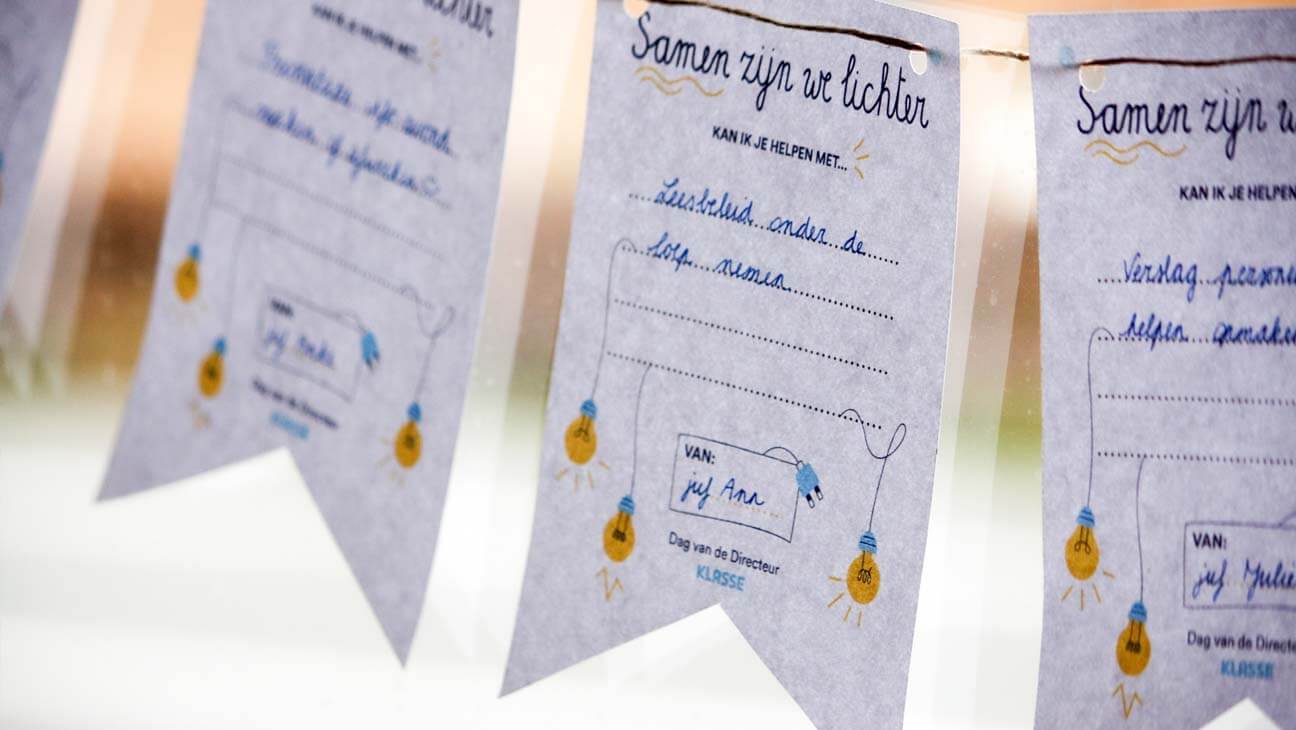 lichter
KAN IK JE HELPEN MET...
juf
Dag van de Directeur
KLASSE
Samen zijn we lichter
KAN IK JE HELPEN MET...
Leesbeleid onder de
loep nemen
VAN:
juf Ann
Dag van de Directeur
KLASSE
Samen zijn w
KAN IK JE HELPEN
Verslag persone
helpen opmake
VAN:
juf Julie
Dag van de Directe
KLASSE